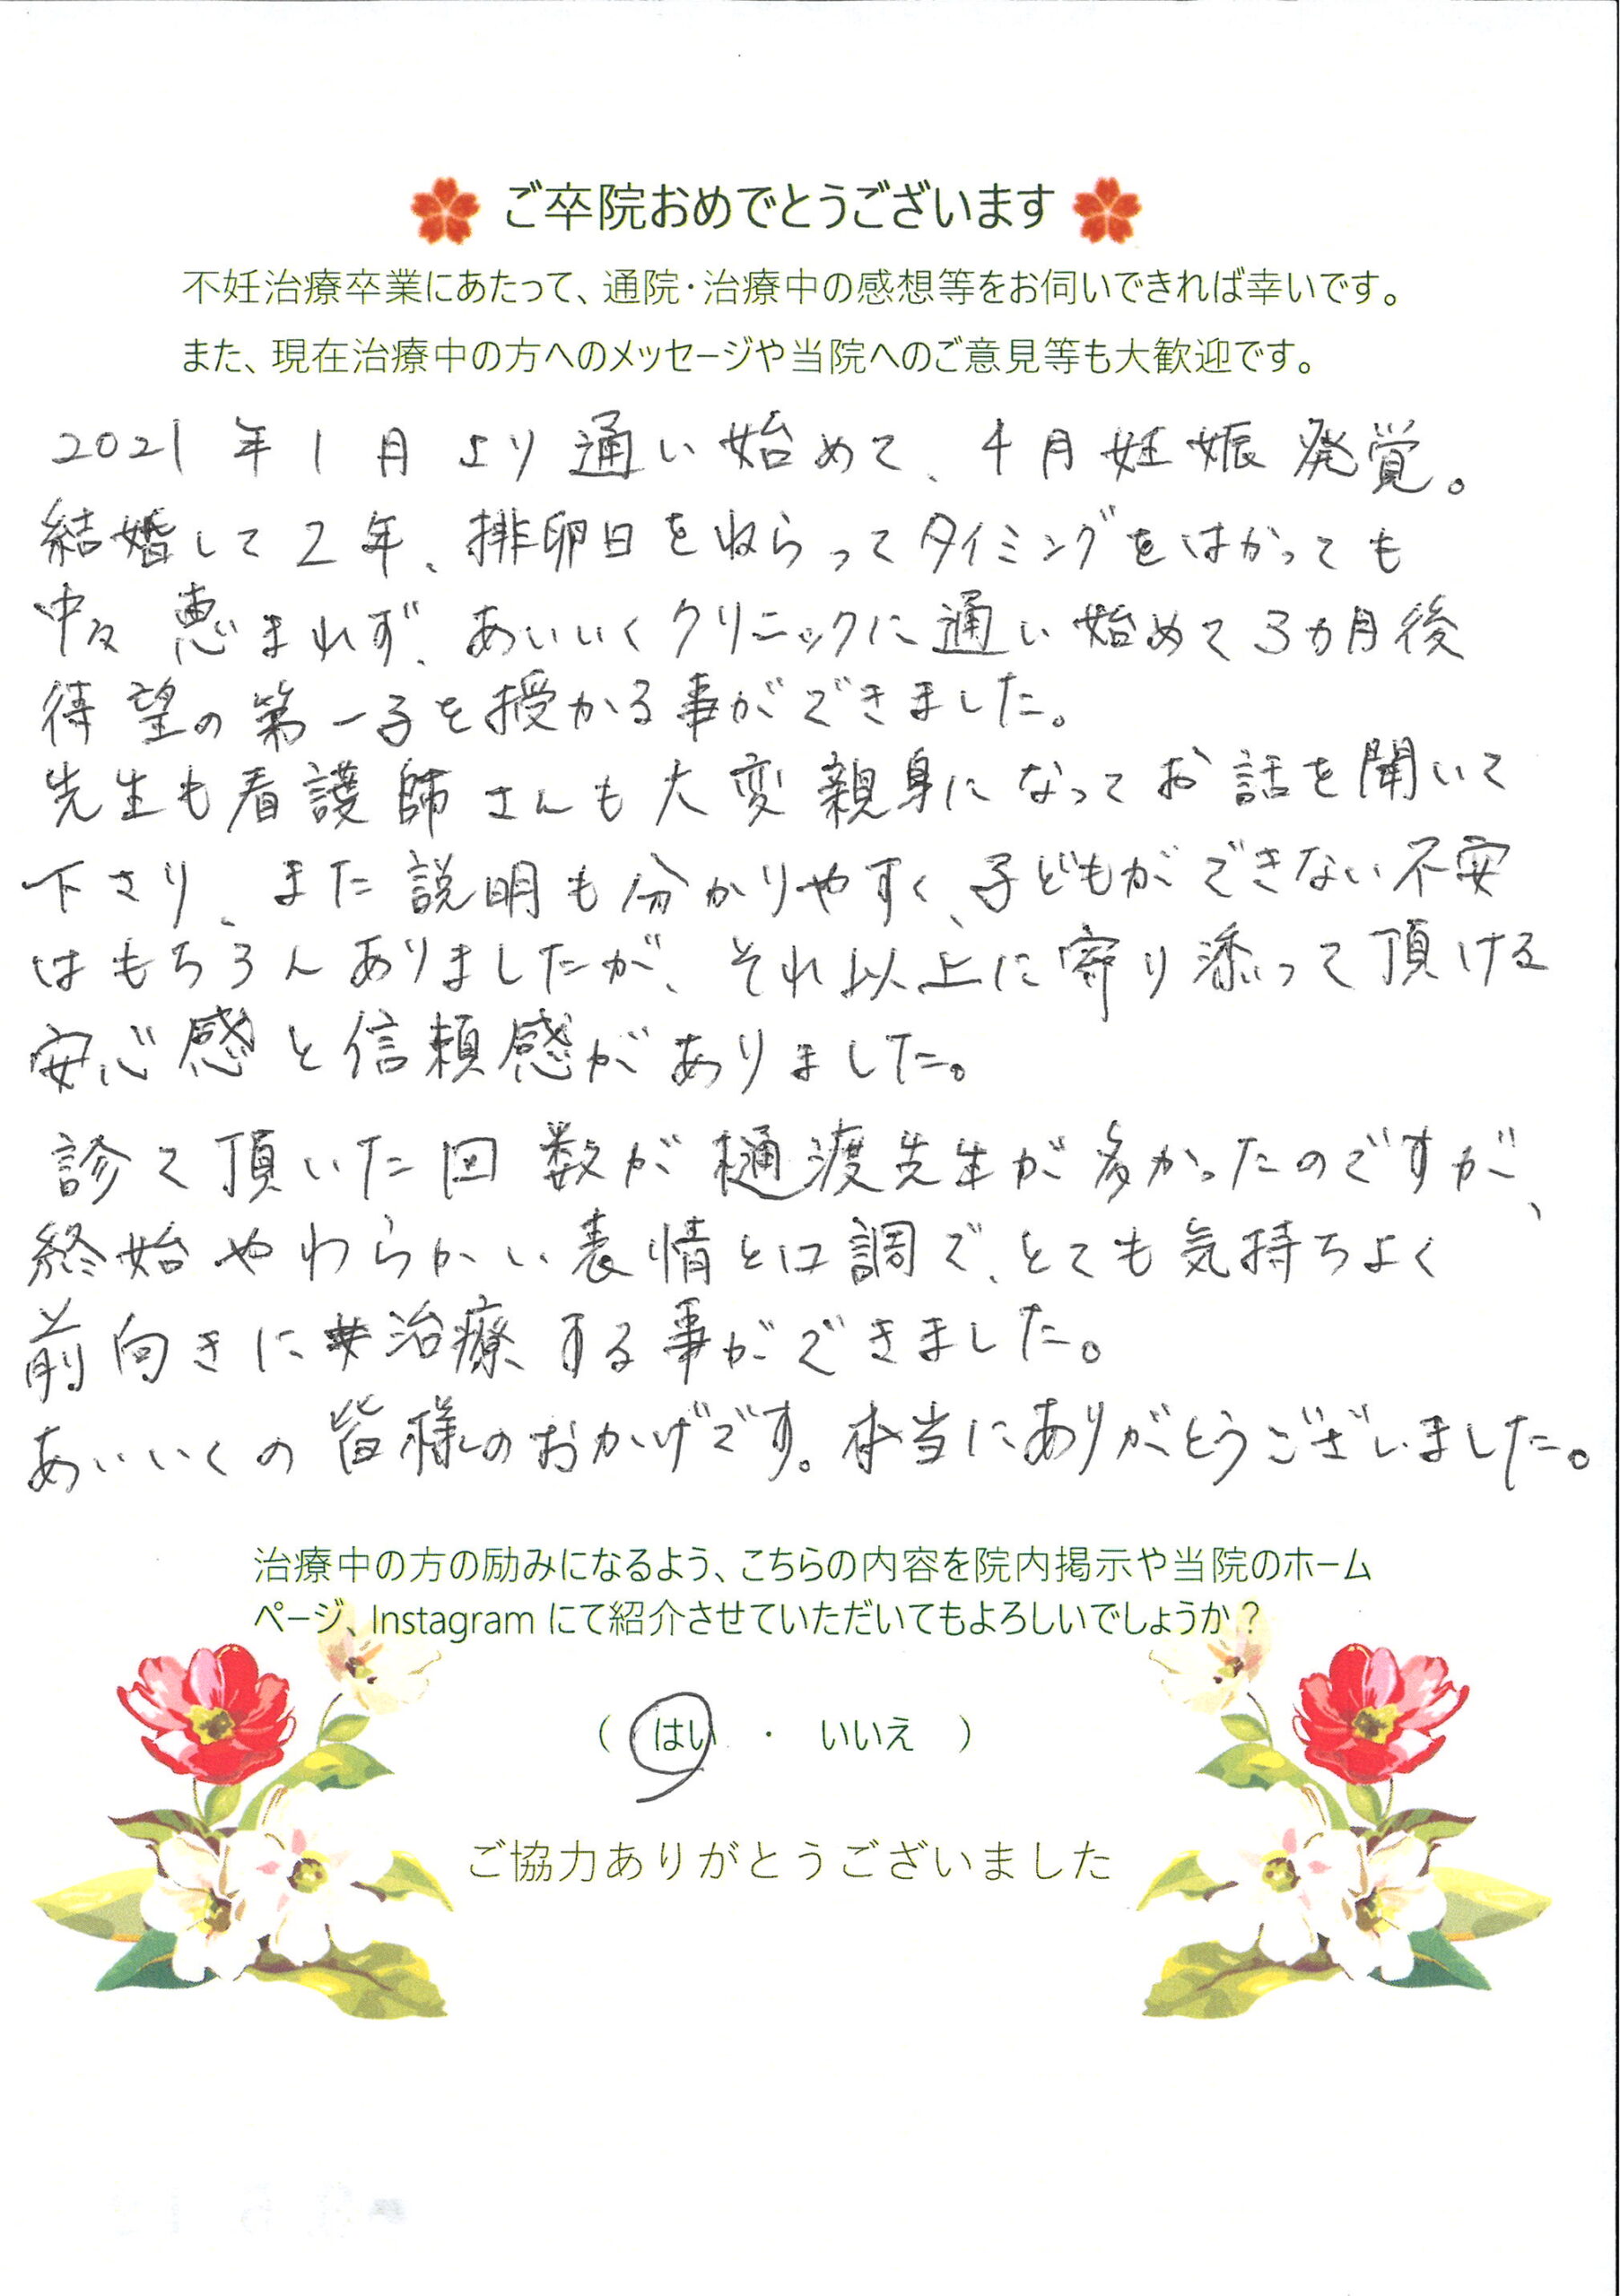 ご卒院おめでとうございます
不妊治療卒業にあたって、通院・治療中の感想等をお伺いできれば幸いです。
また、現在治療中の方へのメッセージや当院へのご意見等も大歓迎です。
2021年1月より通い始めて、4月妊娠発覚。
結婚して2年、排卵日をねらってタイミングをはかっても
中々恵まれず、あいいくクリニックに通い始めて3ヵ月後
待望の第一子を授かる事ができました。
先生も看護師さんも大変親身になってお話を聞いて
下さり、また説明も分かりやすく、子どもができない不安
はもちろんありましたが、それ以上に寄り添って頂ける
安心感と信頼感がありました。
診て頂いた回数が樋渡先生が多かったのですが、
終始やわらかい表情と口調で、とても気持ちよく
前向きに治療する事ができました。
あいいくの皆様のおかげです。本当にありがとうございました。
治療中の方の励みになるよう、こちらの内容を院内掲示や当院のホーム
ページ、Instagram にて紹介させていただいてもよろしいでしょうか？
（ はい ・ いいえ ）
ご協力ありがとうございました